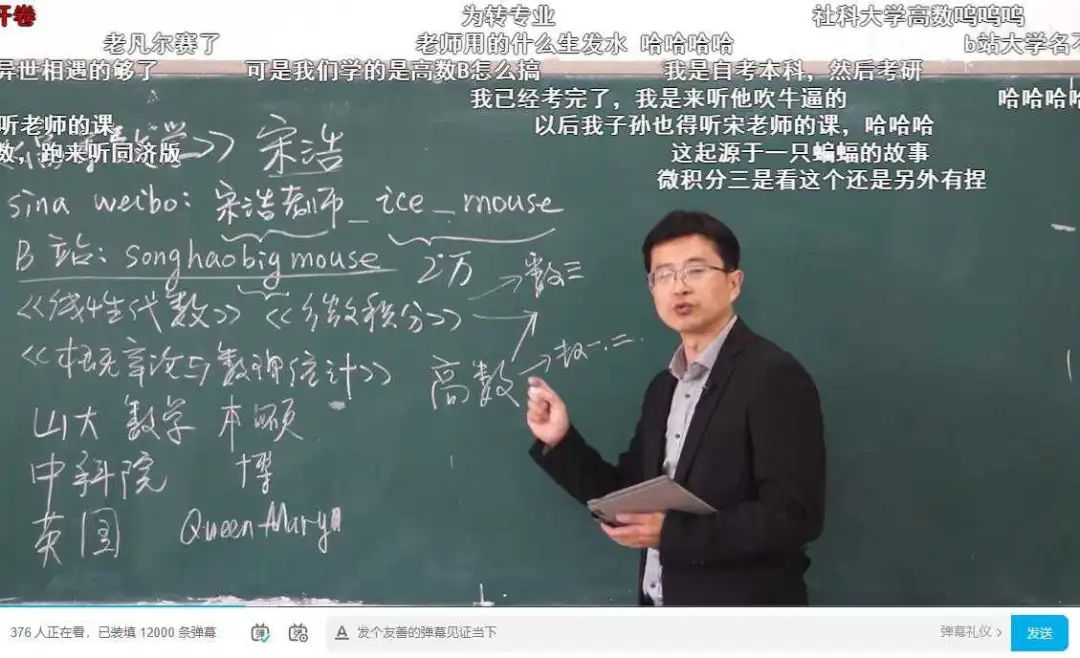 开卷
为转专业
社科大学高数呜呜呜
老凡尔赛了
老师用的什么生发水
哈哈哈哈
b站大学名不
异世相遇的够了
可是我们学的是高数B怎么搞
我是自考本科，然后考研
我已经考完了，我是来听他吹牛逼的
哈哈哈哈
听老师的课
以后我子孙也得听宋老师的课，哈哈哈
数，跑来听同济版
这起源于一只蝙蝠的故事
微积分三是看这个还是另外有捏
学》 宋浩
sina weibo: 宋浩老师_ice_mouse
B站: songhaobigmouse 2万
数三
《线性代数》 《微积分》
《概率论与数理统计》 高数 数一.二.
山大 数学 本 硕
中科院 博
英国 Queen Mary
376 人正在看，已装填 12000 条弹幕
弹
弹
A 发个友善的弹幕见证当下
弹幕礼仪 >
发送